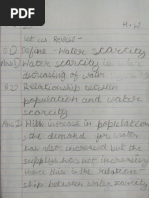 H.W
Let us Revise:-
Q.1) Define Water scarcity
Ans 1) Water scarcity is
decreasing of water
Q.2) Relationship between
population and water
scarcity
Ans 2) With increase in population
the demand for water
has also increased but the
supplys was not increasing
Hence this is the relation
ship between water scarcity